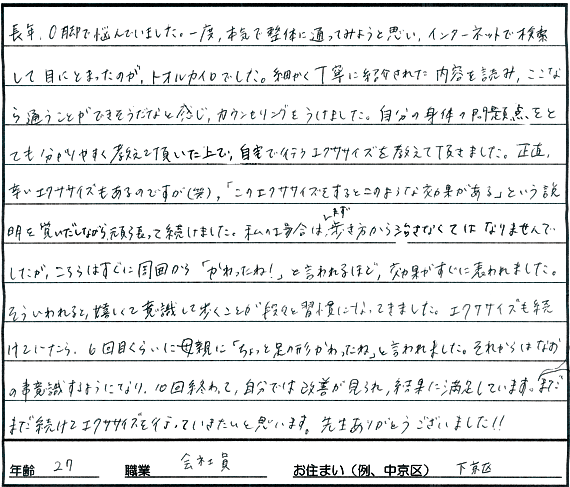 長年、O脚で悩んでいました。一度、本気で整体に通ってみようと思い、インターネットで検索
して目にとまったのが、トオルカイロでした。細かく丁寧に紹介された内容を読み、ここな
ら通うことができそうだなと感じ、カウンセリングをうけました。自分の身体の問題点をと
ても分かりやすく教えて頂いた上で、自宅で行うエクササイズを教えて頂きました。正直、
辛いエクササイズもあるのですが(笑)、「このエクササイズをするとこのような効果がある」という説
明を覚いだしながら頑張って続けました。私の場合は、まず歩き方から治さなくてはなりませんで
したが、こちらはすぐに周囲から「かわったね!」と言われるほど、効果がすぐに表われました。
そういわれると、嬉しくて意識して歩くことが段々と習慣になってきました。エクササイズも続
けていたら、6回目くらいに母親に「ちょっと足の形かわったね」と言われました。それからはなお
の事意識するようになり、10回終わって、自分では改善が見られ、結果に満足しています。まだ
まだ続けてエクササイズを行なっていきたいと思います。先生ありがとうございました!!
年齢 27 職業 会社員 お住まい(例、中京区) 下京区